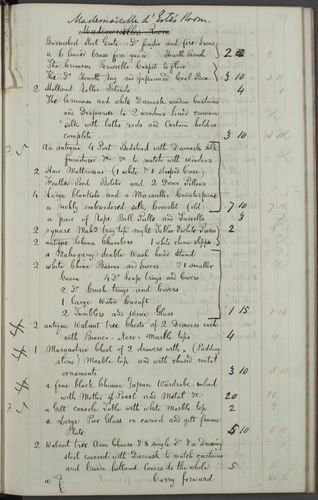 Mademoiselle d'Este's Room.
Mademoiselles Room
Burnished Steel Grate Do fender and fire Irons
a 6 lower brass fire guard Hearth Brush
The Crimson Brussells Carpet to floor 2
The Do Hearth Rug and japanned Coal Box 3 10
2 Holland Roller Blinds 4
The Crimson and white Damask window Curtains
and Draperies to 2 windows lined crimson
silk with laths rods and Curtain holders
complete 3 10
An antique 4 Post Bedstead with Damask silk
furniture &c &c to match with windows
2 Hair Mattresses (1 white & 1 striped Case)
Feather Bed Bolster and 2 Down Pillows
4 Large blankets and a Marseilles Counterpane
a richly embroidered silk Coverlet (old) 7 10
a pair of Rope Bell Pulls and Tassells 3
2 square Mahy tray top night Tables 2
2 antique China Chambers 1 white chma slipper
a Mahogany double Wash hand Stand
2 white China Basons and Ewers & 1 smaller
Bason 4 Do Soap trays and Covers
2 Do Brush trays and Covers
1 Large Water Caraft
2 Tumblers and Wine Glass 1 15
2 antique Walnut tree Chests of 2 Drawers each
with Bianco - Nero - Marble tops 4
1 Marqueterie Chest of 2 drawers with, (Pudding
stone) Marble top and with chased metal
ornaments 3 10
a fine black Chinese Japan Wardrobe inlaid
with Mother of Pearl and Metal &c 20
a Gilt console Table with white Marble top 2
a Large Pier Glass in carved and gilt frame
Plate 5 10
2 Walnut tree Arm Chairs & 8 single Do & a Dressing
stool covered with Damask to match curtains
and brown holland covers to the whole 5
Carry forward